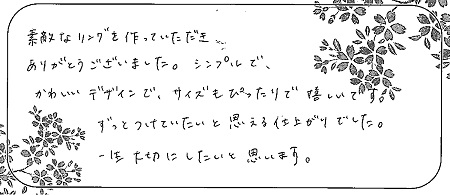 素敵なリングを作っていただき、
ありがとうございました。シンプルで、
かわいいデザインで、サイズもぴったりで嬉しいです。
ずっとつけていたいと思える仕上がりでした。
一生大切にしたいと思います。